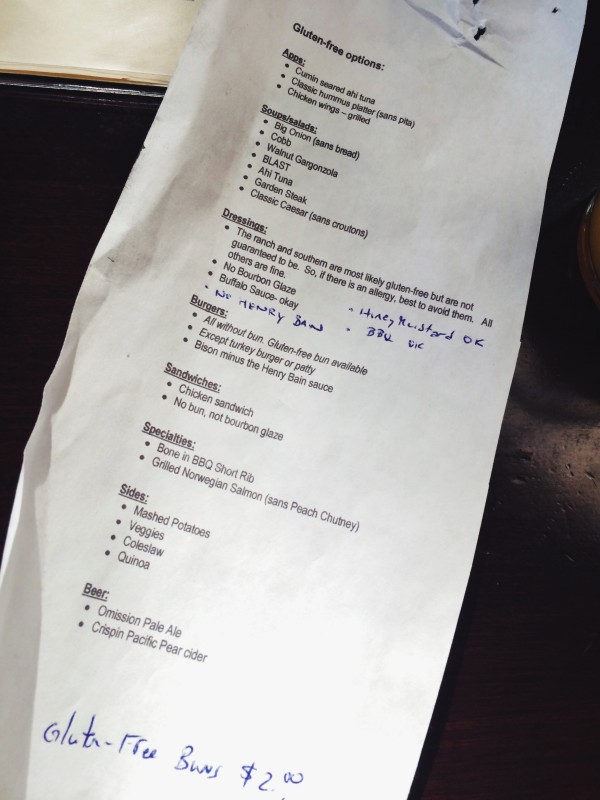 Gluten-free options:
Apps:
• Cumin seared ahi tuna
• Classic hummus platter (sans pita)
• Chicken wings – grilled
Soups/salads:
• Big Onion (sans bread)
• Cobb
• Walnut Gargonzola
• BLAST
• Ahi Tuna
• Garden Steak
• Classic Caesar (sans croutons)
Dressings:
• The ranch and southern are most likely gluten-free but are not
guaranteed to be. So, if there is an allergy, best to avoid them. All
others are fine.
• No Bourbon Glaze
• Buffalo Sauce- okay
• NO HENRY BAIN
• Honey Mustard OK
• BBQ OK
Burgers:
• All without bun. Gluten-free bun available
• Except turkey burger or patty
• Bison minus the Henry Bain sauce
Sandwiches:
• Chicken sandwich
• No bun, not bourbon glaze
Specialties:
• Bone in BBQ Short Rib
• Grilled Norwegian Salmon (sans Peach Chutney)
Sides:
• Mashed Potatoes
• Veggies
• Coleslaw
• Quinoa
Beer:
• Omission Pale Ale
• Crispin Pacific Pear cider
Gluten-Free Buns $2.00